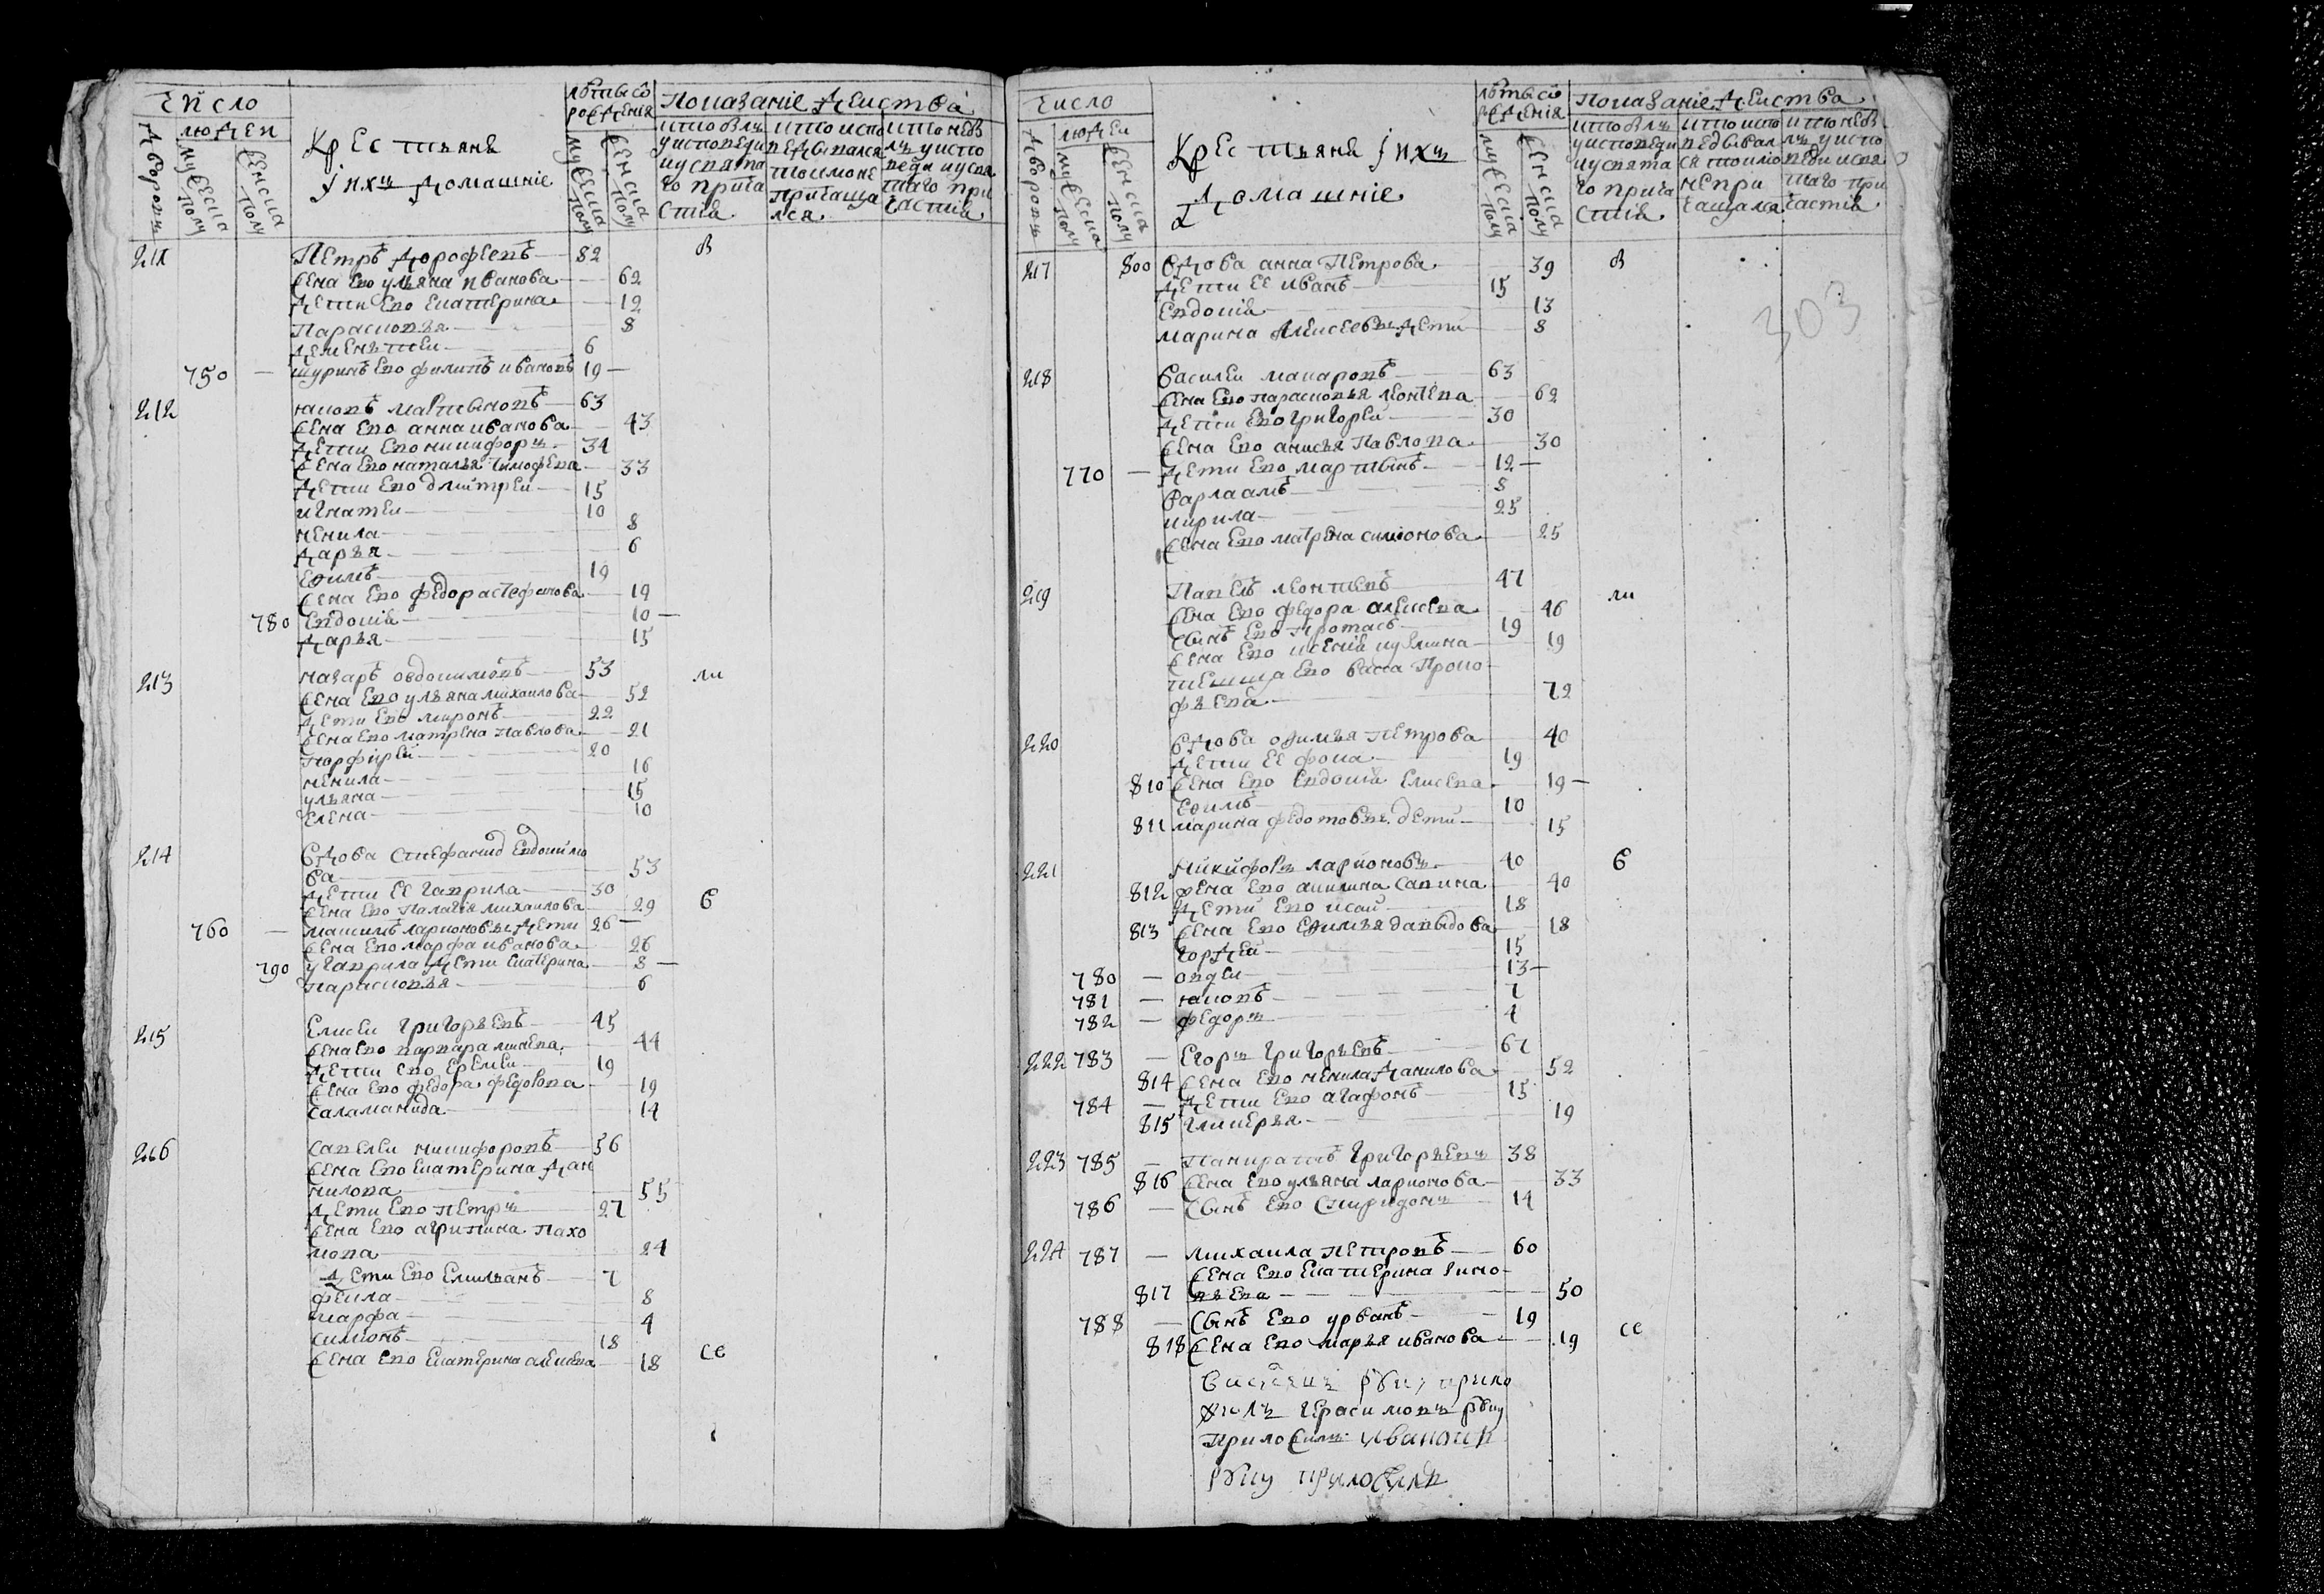 Число
Дворовъ
людеи
мужеска полу
женска полу
Крестьяне
j ихъ домашніе
лѣты ѿ рожденія
мужеска полу
женска полу
Показаніе действа
кто былъ у исповеди и у святаго причастія
кто исповедывался токмо не причащался
кто не былъ у исповеди и у святаго причастія
211 Петръ дорофеевъ 82
жена Ево ульяна иванова 62
дети Ево Екатерина 12
Парасковья 8
дементеи 6
750 — шуринъ Ево филипъ ивановъ 19
212 иаковъ мартыновъ 63
жена Ево анна иванова 43
дети Ево никифоръ 34
жена Ево наталья тимофева 33
дети Ево дмитреи 15
игнатеи 10
ненила 8
дарья 6
Ефимъ 19
жена Ево федора стефанова 19
780 Евдокія 10
дарья 15
213 назаръ овдокимовъ 53
жена Ево ульяна михаилова 52
дети Ево миронъ 22
жена Ево матрена павлова 21
порфиреи 20
ненила 16
ульяна 15
Елена 10
214 вдова стефанид Евдокимо
ва 53
дети Ее гаврила 30
жена Ево Палагія михаилова 29
760 — максимъ ларионовы дети 26
жена Ево марфа иванова 26
790 у гаврила дети Екатерина 8
парасковья 6
215 Елисеи григорьевъ 45
жена Ево варвара минева 44
дети Ево Еремеи 19
жена Ево федора федорова 19
саламанида 14
216 савелеи никифоровъ 56
жена Ево Екатерина дан
нилова 55
дети Ево петръ 27
жена Ево агрипина пахо
мова 24
дети Ево Емильянъ 7
фекла 8
марфа 4
симіонъ 18
жена Ево Екатерина алексева 18
Число
Дворовъ
людеи
мужеска полу
женска полу
Крестьяне j ихъ
домашніе
лѣты ѿ рожденія
мужеска полу
женска полу
Показаніе действа
кто былъ у исповеди и у святаго причастія
кто исповедывался токмо не причащался
кто не былъ у исповеди и святаго причастія
303
217 800 вдова анна Петрова 39
дети Ее иванъ 15
Евдокія 13
марина Алексеевы дети 8
218 василеи макаровъ 63
жена Ево парасковья леонтева 62
дети Ево григореи 30
жена Ево анисья павлова 30
770 — дети Ево мартынъ 12
варлаамъ 8
кирила 25
жена Ево матрена симіонова 25
219 Павелъ леонтевъ 47
жена Ево федора алексева 46
сынъ Ево протасъ 19
жена Ево ксенія кузмина 19
тешща Ево васса Проко
фьева 72
220 вдова офимья петрова 40
дети Ее фока 19
810 жена Ево Евдокія Елисева 19
Ефимъ 10
811 марина федотовы дети 15
221 Никифоръ ларионовъ 40
812 жена Ево акилина савина 40
дети Ево исаи 18
813 жена Ево Ефимья давыдова 18
гордеи 15
780 — авдеи 13
781 — иаковъ 7
782 — федоръ 4
222 783 — Егоръ григорьевъ 67
814 жена Ево ненила данилова 52
784 — дети Ево агафонъ 15
815 гликерья 19
223 785 — Панкратъ григорьевъ 38
816 жена Ево ульяна ларионова 33
786 — сынъ Ево спиридонъ 14
224 787 — михаила петровъ 60
жена Ево Екатерина зино
817 вьева 50
788 — сынъ Ево урванъ 19
818 жена Ево марья иванова 19
руку прило
жилъ герасимовъ руку
приложилъ ивановъ
руку приложилъ